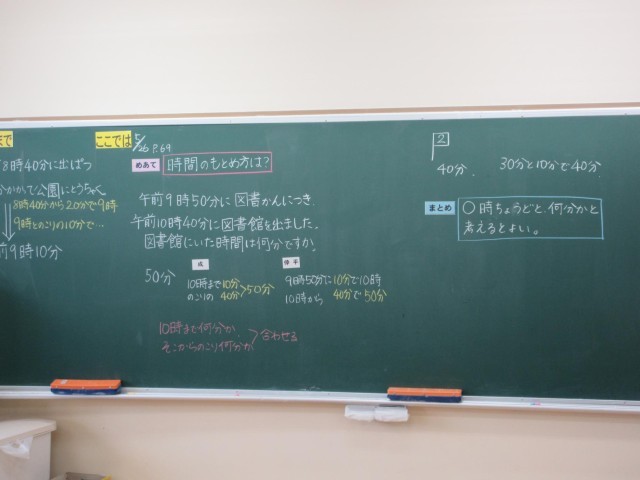 まで
8時40分に出ぱつ
かかって公園にとうちゃく
8時40分から20分で9時
9時とのこりの10分で…
前9時10分
ここでは
5/26 P.69
めあて 時間のもとめ方は?
午前9時50分に図書かんにつき、
午前10時40分に図書館を出ました。
図書館にいた時間は何分ですか。
50分
10時まで10分
のこりの40分>50分
9時50分に10分で10時
10時から 40分で50分
10時まで何分か
そこからのこり何分か>合わせる
2
40分. 30分と10分で40分
まとめ ○時ちょうどと、何分かと
考えるとよい。